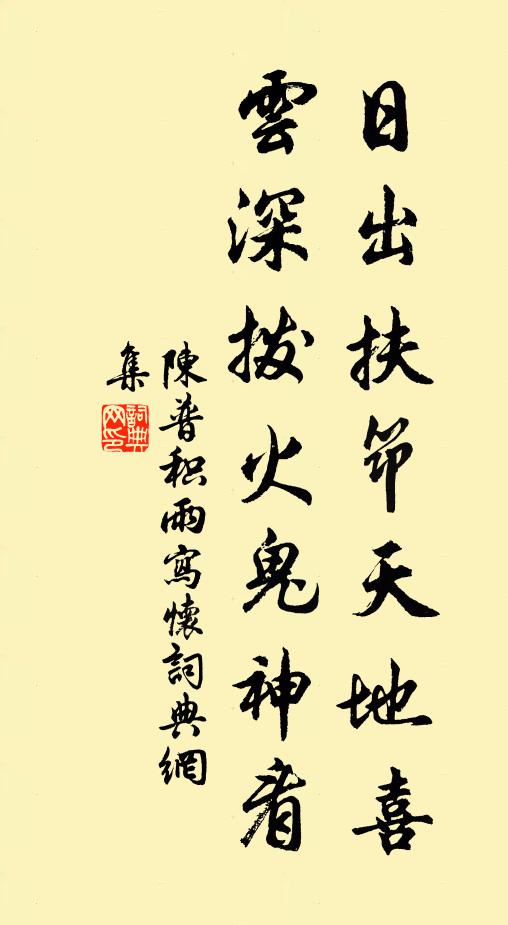 日出扶筇天地喜
雲深拨火鬼神看
陳普积雨寫懷詞典網
集
詞典
网印